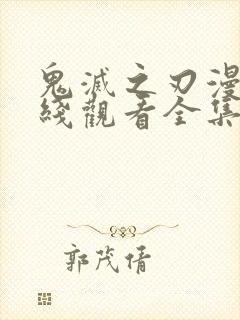 鬼滅之刃漫
綫觀看全集
郭茂倩